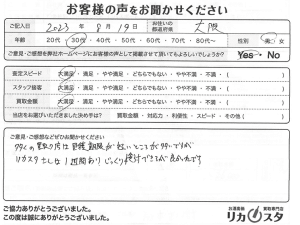 お客様の声をお聞かせください
ご記入日 2023年 8月 19日 お住いの都道府県 大阪
年齢 20代・30代・40代・50代・60代・70代・80代〜 性別 男・女
ご意見・ご感想を弊社ホームページにお客様の声として掲載させて頂いてもよろしいでしょうか？ Yes・No
査定スピード 大満足・満足・やや満足・どちらでもない・やや不満・不満・( )
スタッフ接客 大満足・満足・やや満足・どちらでもない・やや不満・不満・( )
買取金額 大満足・満足・やや満足・どちらでもない・やや不満・不満・( )
当店をお選びいただきました決め手は？ 買取金額・対応力・利便性・スピード・その他( )
ご意見・ご感想などぜひお聞かせください
多くの買取り店は 期限が短いところが多いですが
リカスタさんは 1週間あり じっくり検討できるが良かったです
ご協力ありがとうございました。
この度は誠にありがとうございました。
お酒買取 買取専門店
リカスタ